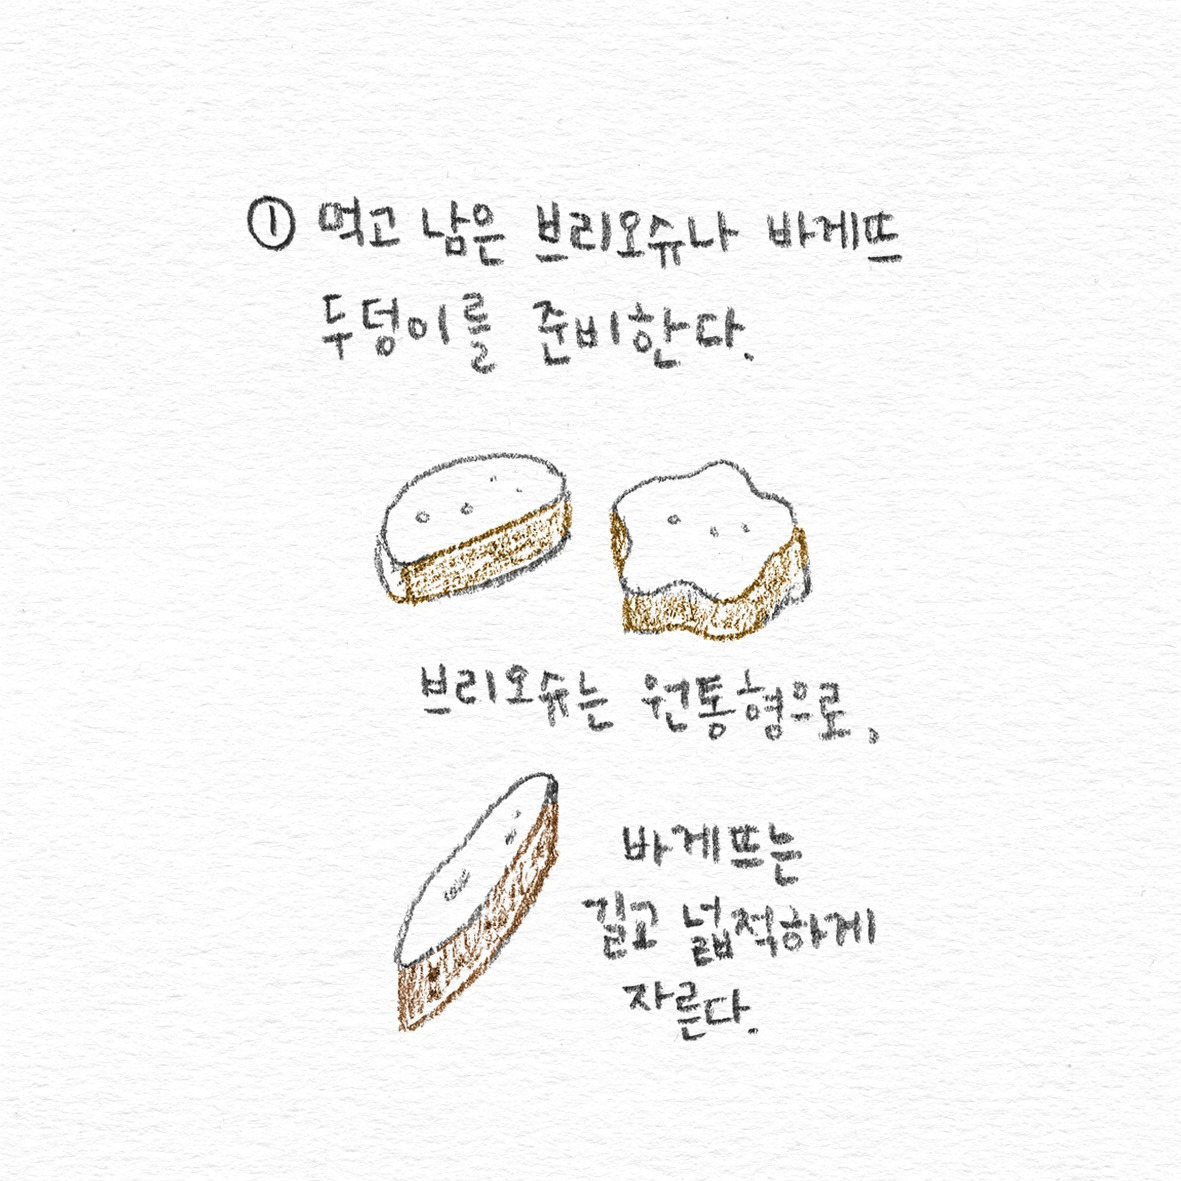 ① 먹고 남은 브리오슈나 바게뜨
두덩이를 준비한다.
브리오슈는 원통형으로,
바게뜨는
길고 넓적하게
자른다.